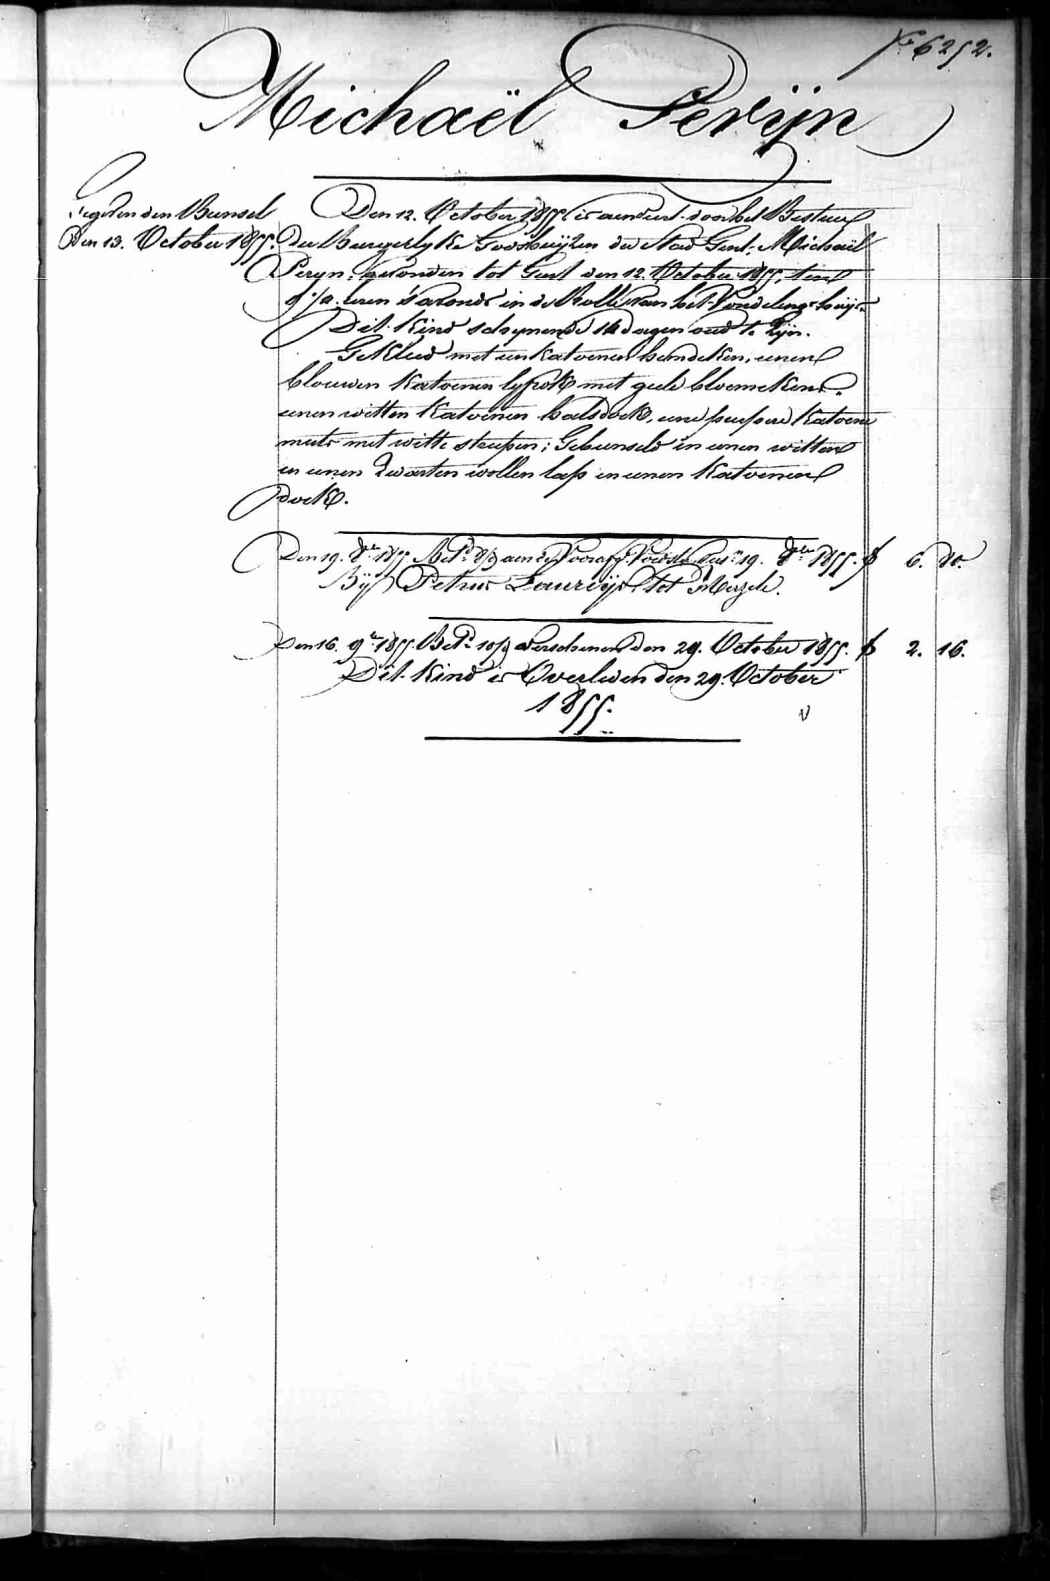 No 6252.
Michaël Peryn
Gegeven den Bunsel
Den 13. October 1855.
Den 12. October 1855. is aenveerd door het Bestuur
der Burgerlyke Godshuijzen der Stad Gent: Michaël
Peryn, gevonden tot Gent den 12. October 1855, ten
9 1/2 uren 's avonds in de Rolle van het Vondelings huijs.
Dit Kind schynende 14 dagen oud te Zijn.
Gekleed met een katoenen hemdeken, eenen
blouwen katoenen lyfrok met geele bloemekens,
eenen witten katoenen halsdoek, eene purpere katoene
muts met witte strepen; Gebunseld in eenen witten
en eenen zwarten wollen lap en eenen katoenen
doek.
Den 19. 8er 1855 Betd 8/ aen Voorafg. 19. 1855. f 6. 80.
Bij Petrus Lauwijs tot
Den 16. 9er 1855. Betd 10/ verschenen den 29. October 1855. f 2. 16.
Dit Kind is Overleden den 29. October
1855.